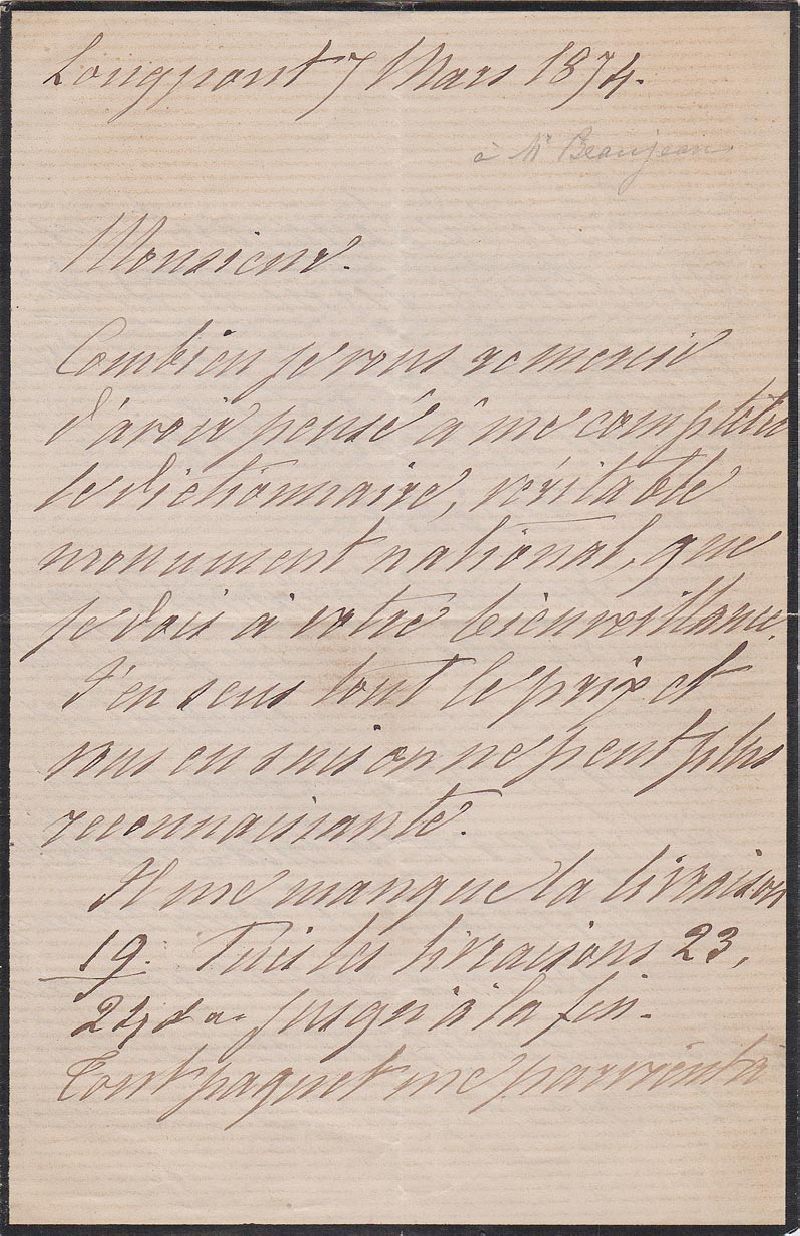 Longpont 7 Mars 1874.
à Mr Beaujean
Monsieur.
Combien je vous remercie
d'avoir pensé à me completer
le dictionnaire, véritable
monument national, que
je dois à votre bienveillance.
J'en sens tout le prix et
vous en suis on ne peut plus
reconnaissante.
Il me manque la livraison
19. Puis les livraisons 23,
24 jusqu'à la fin.
Tout paquet me parvient à